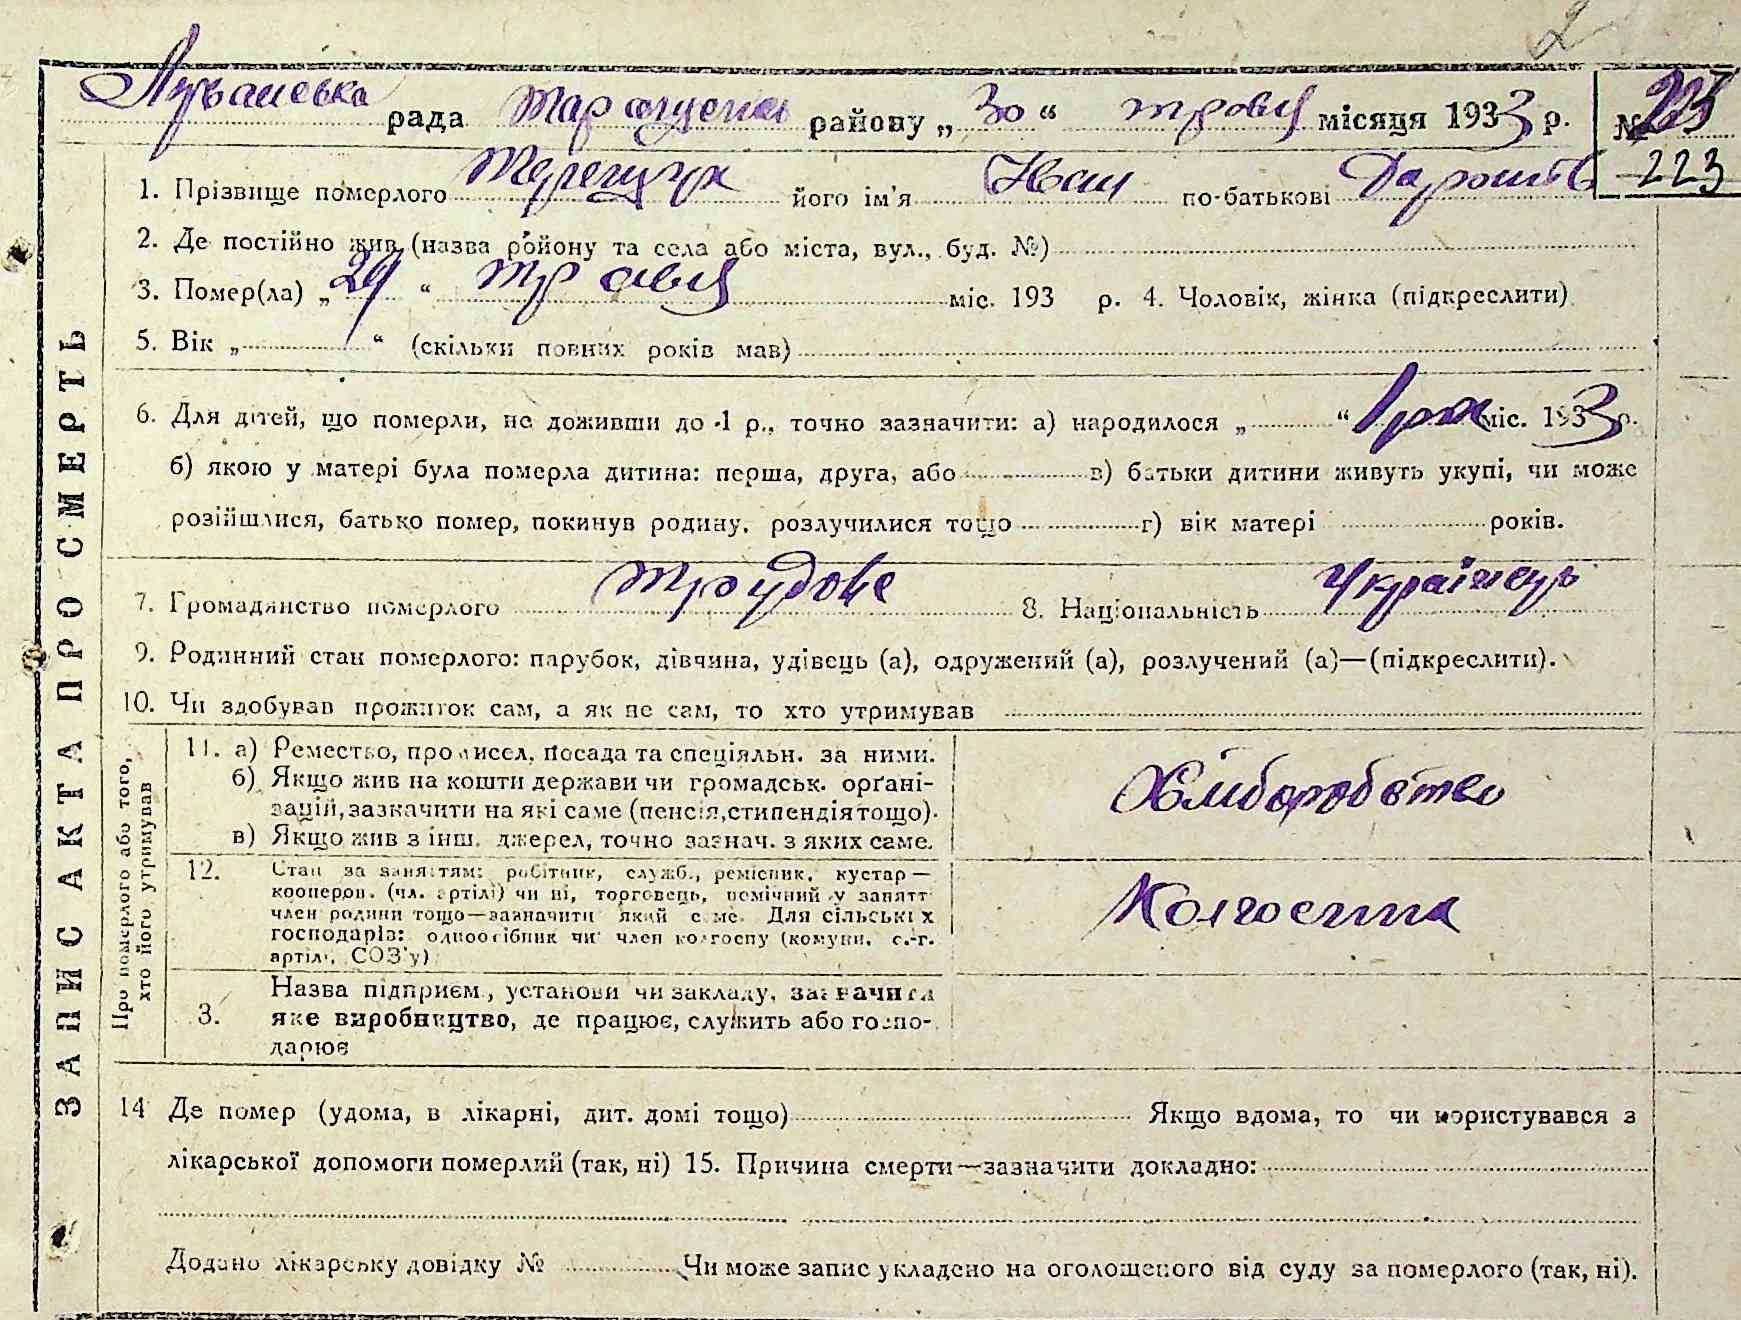 2
Лучанська рада Таращанськ району „ 30 “ травня місяця 1933 р. № 223
1. Прізвище померлого Терещук його ім'я Іван по-батькові 223
2. Де постійно жив (назва району та села або міста, вул., буд. №)
3. Помер(ла) „ 29 “ травня міс. 193 р. 4. Чоловік, жінка (підкреслити)
5. Вік „ “ (скільки повних років мав)
6. Для дітей, що померли, не доживши до 1 р., точно зазначити: а) народилося „ “ 1 рік міс. 1933 р.
б) якою у матері була померла дитина: перша, друга, або в) батьки дитини живуть укупі, чи може
розійшлися, батько помер, покинув родину, розлучилися тощо г) вік матері років.
7. Громадянство померлого трудове 8. Національність Українець
9. Родинний стан померлого: парубок, дівчина, удівець (а), одружений (а), розлучений (а)—(підкреслити).
10. Чи здобував прожиток сам, а як не сам, то хто утримував
ЗАПИС АКТА ПРО СМЕРТЬ
Про померлого або того,
хто його утримував
11. а) Ремество, промисел, посада та спеціяльн. за ними.
б) Якщо жив на кошти держави чи громадськ. орґані-
зацій, зазначити на які саме (пенсія, стипендія тощо).
в) Якщо жив з інш. джерел, точно зазнач. з яких саме.
Хліборобство
12. Стан за заняттям: робітник, служб., ремісник, кустар—
кооперов. (чл. артілі) чи ні, торговець, помічний у занятт
член родини тощо—зазначити який саме. Для сільських
господарів: одноосібник чи член колгоспу (комуни, с.-г.
артілі, СОЗ'у)
Колгоспник
3. Назва підприєм., установи чи закладу, зазначити
яке виробництво, де працює, служить або госпо-
дарює
14 Де помер (удома, в лікарні, дит. домі тощо) Якщо вдома, то чи користувався з
лікарської допомоги померлий (так, ні) 15. Причина смерти—зазначити докладно:
Додано лікарську довідку № Чи може запис укладено на оголошеного від суду за померлого (так, ні).